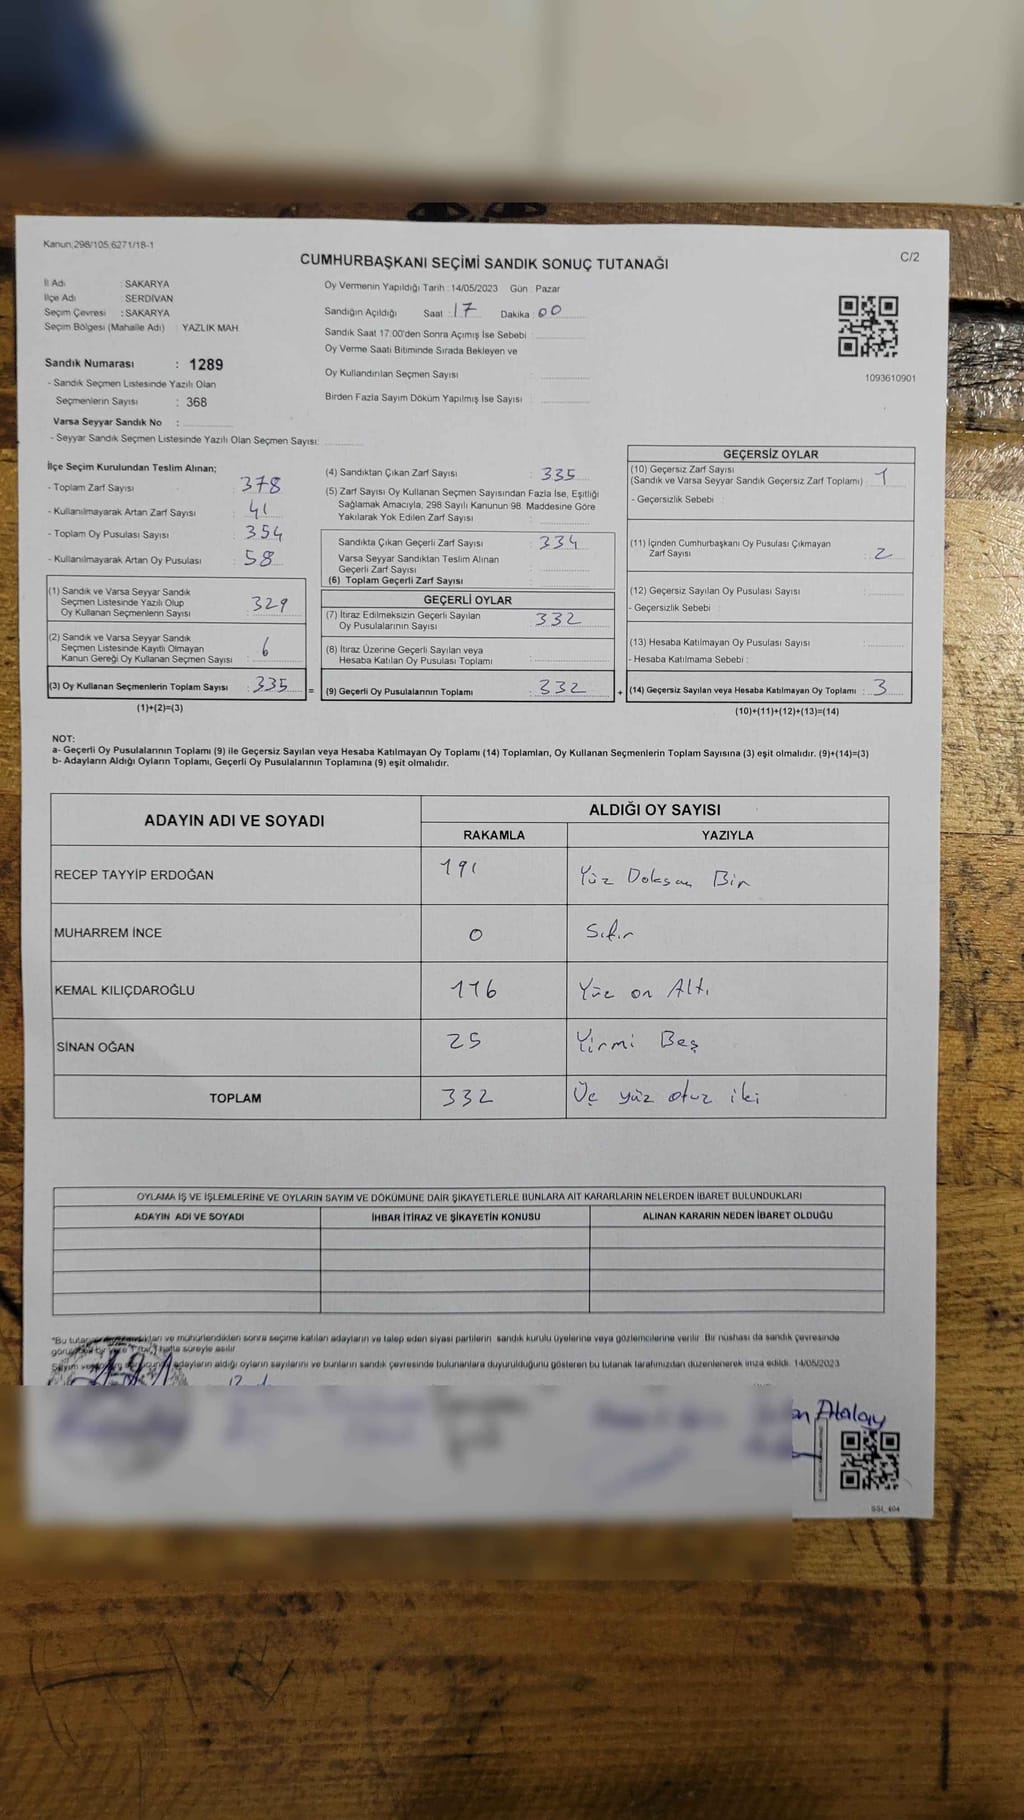 Kanun;298/105,6271/18-1
C/2
CUMHURBAŞKANI SEÇİMİ SANDIK SONUÇ TUTANAĞI
İl Adı : SAKARYA
İlçe Adı : SERDİVAN
Seçim Çevresi : SAKARYA
Seçim Bölgesi (Mahalle Adı) : YAZLIK MAH
Oy Vermenin Yapıldığı Tarih : 14/05/2023 Gün : Pazar
Sandığın Açıldığı Saat : 17 Dakika : 00
Sandık Saat 17:00'den Sonra Açımış İse Sebebi :
Oy Verme Saati Bitiminde Sırada Bekleyen ve
Oy Kullandırılan Seçmen Sayısı :
Birden Fazla Sayım Döküm Yapılmış İse Sayısı :
1093610901
Sandık Numarası : 1289
- Sandık Seçmen Listesinde Yazılı Olan
Seçmenlerin Sayısı : 368
Varsa Seyyar Sandık No :
- Seyyar Sandık Seçmen Listesinde Yazılı Olan Seçmen Sayısı:
İlçe Seçim Kurulundan Teslim Alınan;
- Toplam Zarf Sayısı : 378
- Kullanılmayarak Artan Zarf Sayısı : 41
- Toplam Oy Pusulası Sayısı : 354
- Kullanılmayarak Artan Oy Pusulası : 58
(1) Sandık ve Varsa Seyyar Sandık
Seçmen Listesinde Yazılı Olup
Oy Kullanan Seçmenlerin Sayısı : 329
(2) Sandık ve Varsa Seyyar Sandık
Seçmen Listesinde Kayıtlı Olmayan
Kanun Gereği Oy Kullanan Seçmen Sayısı : 6
(3) Oy Kullanan Seçmenlerin Toplam Sayısı : 335
(1)+(2)=(3)
(4) Sandıktan Çıkan Zarf Sayısı : 335
(5) Zarf Sayısı Oy Kullanan Seçmen Sayısından Fazla İse, Eşitliği
Sağlamak Amacıyla, 298 Sayılı Kanunun 98. Maddesine Göre
Yakılarak Yok Edilen Zarf Sayısı :
Sandıkta Çıkan Geçerli Zarf Sayısı : 334
Varsa Seyyar Sandıktan Teslim Alınan
Geçerli Zarf Sayısı :
(6) Toplam Geçerli Zarf Sayısı
GEÇERLİ OYLAR
(7) İtiraz Edilmeksizin Geçerli Sayılan
Oy Pusulalarının Sayısı : 332
(8) İtiraz Üzerine Geçerli Sayılan veya
Hesaba Katılan Oy Pusulası Toplamı :
= (9) Geçerli Oy Pusulalarının Toplamı : 332
GEÇERSİZ OYLAR
(10) Geçersiz Zarf Sayısı
(Sandık ve Varsa Seyyar Sandık Geçersiz Zarf Toplamı) : 1
- Geçersizlik Sebebi :
(11) İçinden Cumhurbaşkanı Oy Pusulası Çıkmayan
Zarf Sayısı : 2
(12) Geçersiz Sayılan Oy Pusulası Sayısı :
- Geçersizlik Sebebi :
(13) Hesaba Katılmayan Oy Pusulası Sayısı :
- Hesaba Katılmama Sebebi :
+ (14) Geçersiz Sayılan veya Hesaba Katılmayan Oy Toplamı : 3
(10)+(11)+(12)+(13)=(14)
NOT:
a- Geçerli Oy Pusulalarının Toplamı (9) ile Geçersiz Sayılan veya Hesaba Katılmayan Oy Toplamı (14) Toplamları, Oy Kullanan Seçmenlerin Toplam Sayısına (3) eşit olmalıdır. (9)+(14)=(3)
b- Adayların Aldığı Oyların Toplamı, Geçerli Oy Pusulalarının Toplamına (9) eşit olmalıdır.
ADAYIN ADI VE SOYADI
ALDIĞI OY SAYISI
RAKAMLA YAZIYLA
RECEP TAYYİP ERDOĞAN 191 Yüz Doksan Bir
MUHARREM İNCE 0 Sıfır
KEMAL KILIÇDAROĞLU 116 Yüz on Altı
SİNAN OĞAN 25 Yirmi Beş
TOPLAM 332 Üç yüz otuz iki
OYLAMA İŞ VE İŞLEMLERİNE VE OYLARIN SAYIM VE DÖKÜMÜNE DAİR ŞİKAYETLERLE BUNLARA AİT KARARLARIN NELERDEN İBARET BULUNDUKLARI
ADAYIN ADI VE SOYADI İHBAR İTİRAZ VE ŞİKAYETİN KONUSU ALINAN KARARIN NEDEN İBARET OLDUĞU
"Bu ve mühürlendikten sonra seçime katılan adayların ve talep eden siyasi partilerin sandık kurulu üyelerine veya gözlemcilerine verilir. Bir nüshası da sandık çevresinde
hafta süreyle asılır.
adayların aldığı oyların sayılarını ve bunların sandık çevresinde bulunanlara duyurulduğunu gösteren bu tutanak tarafımızdan düzenlenerek imza edildi. 14/05/2023
Atalay
SSI_404